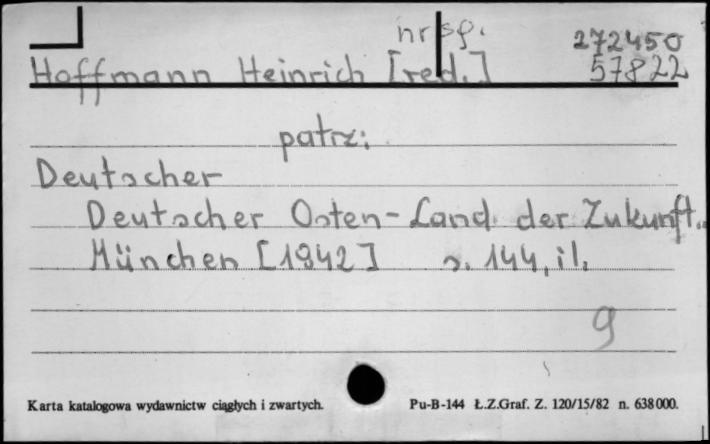 nr sp. 272450
Hoffmann Heinrich [red.] 57822
patrz:
Deutscher
Deutscher Osten-Land der Zukunft..
München [1942] s. 144, il.
9
Karta katalogowa wydawnictw ciągłych i zwartych. Pu-B-144 Ł.Z.Graf. Z. 120/15/82 n. 638000.